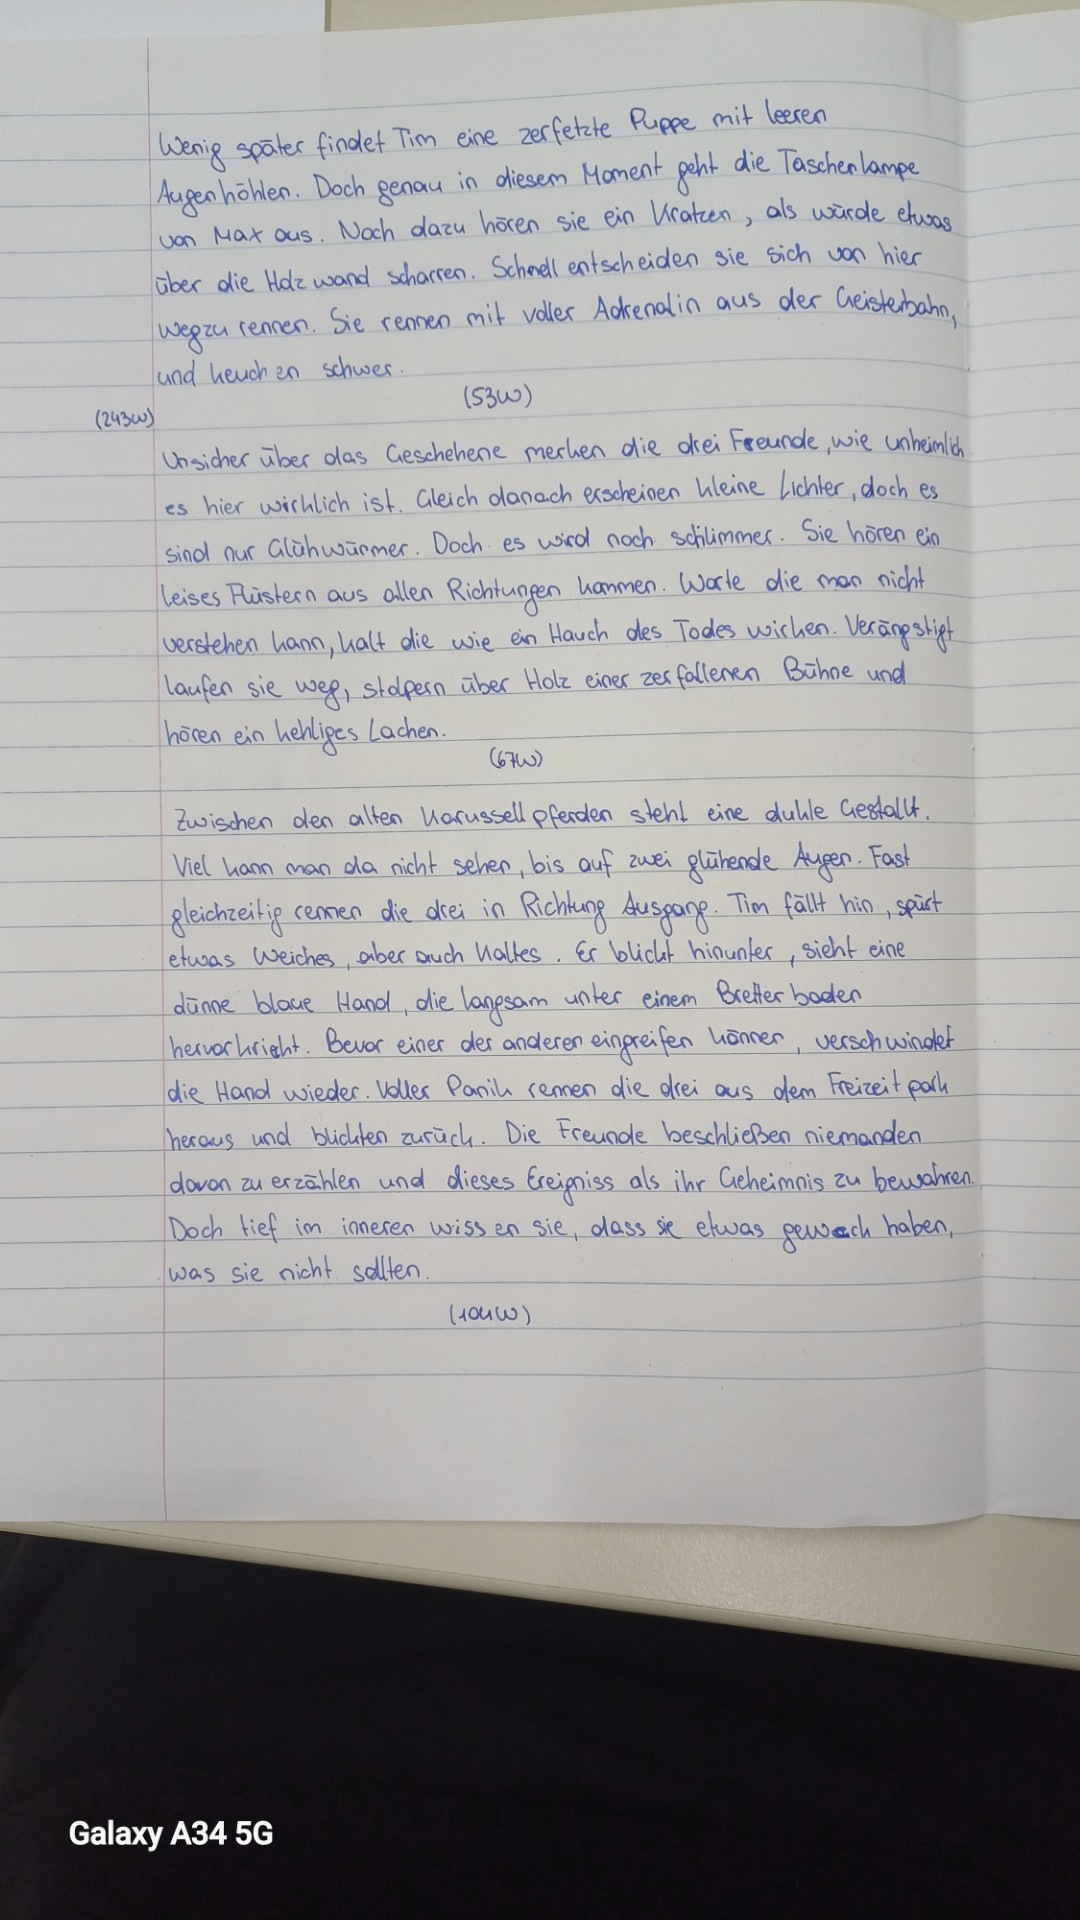 Wenig später findet Tim eine zerfetzte Puppe mit leeren
Augenhöhlen. Doch genau in diesem Moment geht die Taschenlampe
von Max aus. Noch dazu hören sie ein Kratzen, als würde etwas
über die Holzwand scharren. Schnell entscheiden sie sich von hier
wegzu rennen. Sie rennen mit voller Adrenalin aus der Geisterbahn,
und keuchen schwer.
(53W)
(243W)
Unsicher über das Geschehene merken die drei Freunde, wie unheimlich
es hier wirklich ist. Gleich danach erscheinen kleine Lichter, doch es
sind nur Glühwürmer. Doch es wird noch schlimmer. Sie hören ein
leises Flüstern aus allen Richtungen kommen. Worte die man nicht
verstehen kann, kalt die wie ein Hauch des Todes wirken. Verängstigt
laufen sie weg, stolpern über Holz einer zerfallenen Bühne und
hören ein kehliges Lachen.
(67W)
Zwischen den alten Karussellpferden steht eine dukle Gestallt.
Viel kann man da nicht sehen, bis auf zwei glühende Augen. Fast
gleichzeitig rennen die drei in Richtung Ausgang. Tim fällt hin, spürt
etwas Weiches, aber auch Kaltes. Er blickt hinunter, sieht eine
dünne blaue Hand, die langsam unter einem Bretterboden
hervorkriecht. Bevor einer der anderen eingreifen können, verschwindet
die Hand wieder. Voller Panik rennen die drei aus dem Freizeitpark
heraus und blickten zurück. Die Freunde beschließen niemanden
davon zu erzählen und dieses Ereigniss als ihr Geheimnis zu bewahren.
Doch tief im inneren wissen sie, dass sie etwas geweckt haben,
was sie nicht sollten.
(104W)
Galaxy A34 5G